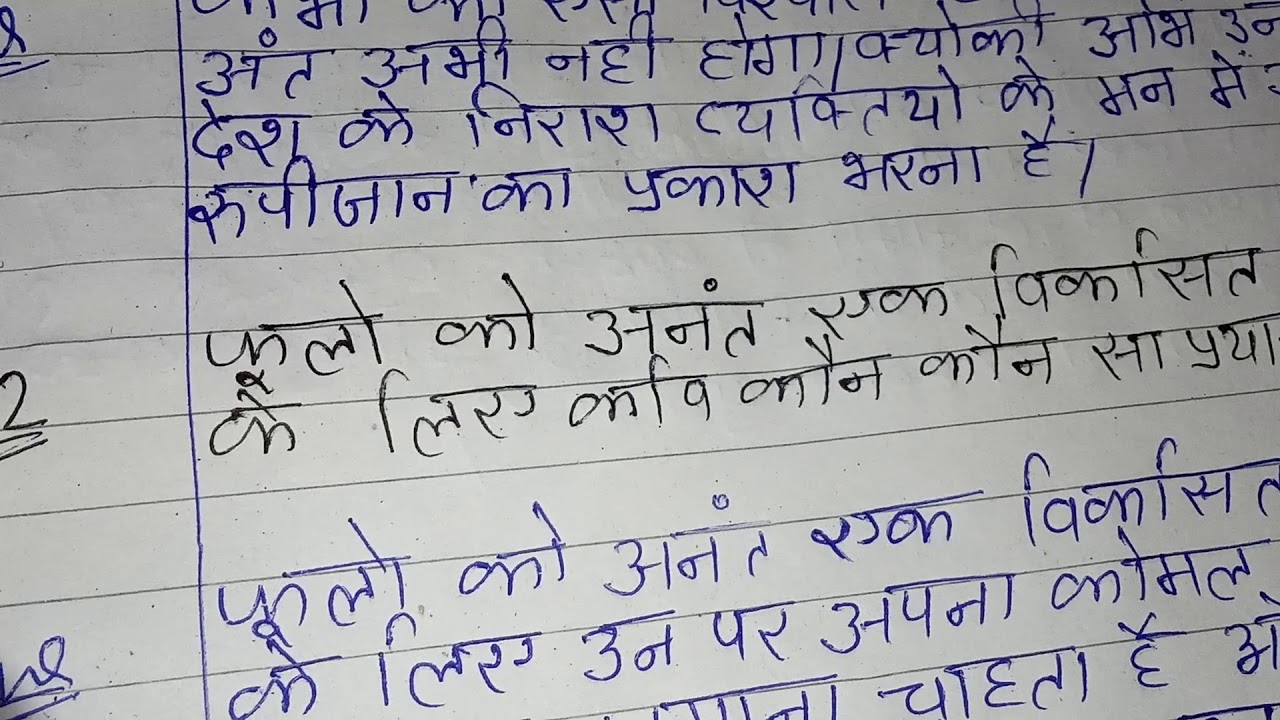 अंत अभी नही होगा। क्योकी ओभ
देश के निराश व्यक्तियो के मन मे
रूपी जान का प्रकाश भरना है।
2 फूलो को अनंत एक विकसित
के लिए कवि कौन कौन सा
फूलो को अनंत एक विकसित
के लिए उन पर अपना कोमल
चाहता है